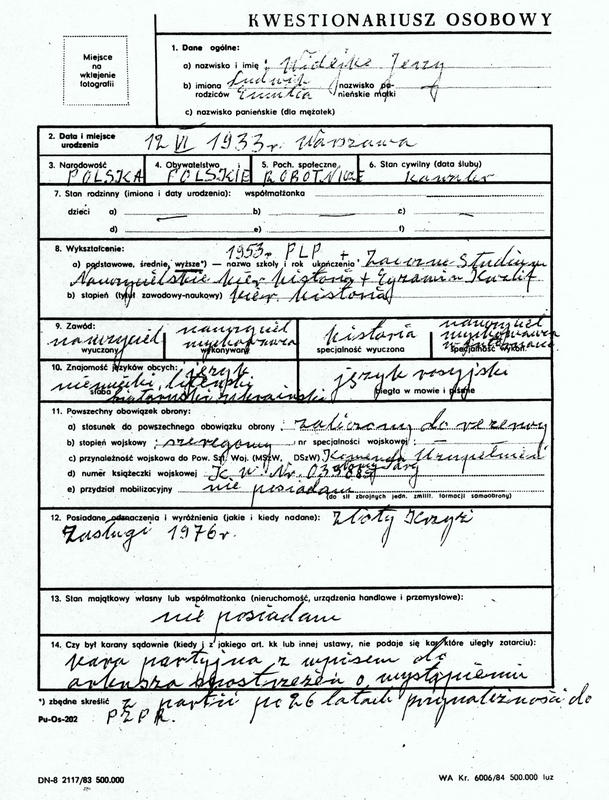 KWESTIONARIUSZ OSOBOWY
Miejsce
na
wklejenie
fotografii
1. Dane ogólne:
a) nazwisko i imię: Widejko Jerzy
b) imiona rodziców Ludwik Emilia nazwisko panieńskie matki
c) nazwisko panieńskie (dla mężatek)
2. Data i miejsce urodzenia 12 VI 1933 r. Warszawa
3. Narodowość POLSKA 4. Obywatelstwo POLSKIE 5. Poch. społeczne ROBOTNICZE 6. Stan cywilny (data ślubu) kawaler
7. Stan rodzinny (imiona i daty urodzenia): współmałżonka
dzieci a) — b) — c) —
d) e) f)
8. Wykształcenie: 1953 r. PLP +
a) podstawowe, średnie, wyższe*) — nazwa szkoły i rok ukończenia Zaoczne Studium
Nauczycielskie kier. historia + Egzamin Kwalif
b) stopień (tytuł zawodowy-naukowy) kier. historia
9. Zawód:
nauczyciel wyuczony nauczyciel wychowawca wykonywany historia specjalność wyuczona nauczyciel wychowawca specjalność wykon.
10. Znajomość języków obcych: język
niemiecki, litewski słaba język rosyjski biegła w mowie i piśmie
białoruski, ukraiński
11. Powszechny obowiązek obrony:
a) stosunek do powszechnego obowiązku obrony: zaliczony do rezerwy
b) stopień wojskowy: szeregowy nr specjalności wojskowej:
c) przynależność wojskowa do Pow. Szt. Woj. (MSzW, DSzW) Komenda Uzupełnień
d) numer książeczki wojskowej K W Nr.
e) przydział mobilizacyjny nie posiadam
(do sił zbrojnych jedn. zmilit. formacji samoobrony)
12. Posiadane odznaczenia i wyróżnienia (jakie i kiedy nadane): Złoty Krzyż
Zasługi 1976 r.
13. Stan majątkowy własny lub współmałżonka (nieruchomość, urządzenia handlowe i przemysłowe):
nie posiadam
14. Czy był karany sądownie (kiedy i z jakiego art. kk lub innej ustawy, nie podaje się kar, które uległy zatarciu):
kara partyjna z wpisem do
arkusza spostrzeżeń o wystąpieniu
*) zbędne skreślić z partii po 26 latach przynależności do
Pu-Os-202 PZPR.
DN-8 2117/83 500.000
WA Kr. 6006/84 500.000 luz